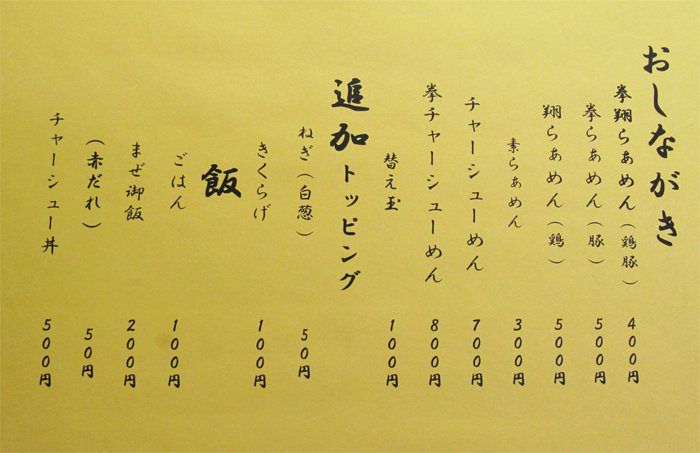 おしながき
拳翔らぁめん（鶏豚） 400円
拳らぁめん（豚） 500円
翔らぁめん（鶏） 500円
素らぁめん 300円
チャーシューめん 700円
拳チャーシューめん 800円
替え玉 100円
追加トッピング
ねぎ（白葱） 50円
きくらげ 100円
飯
ごはん 100円
まぜ御飯 200円
（赤だれ） 50円
チャーシュー丼 500円